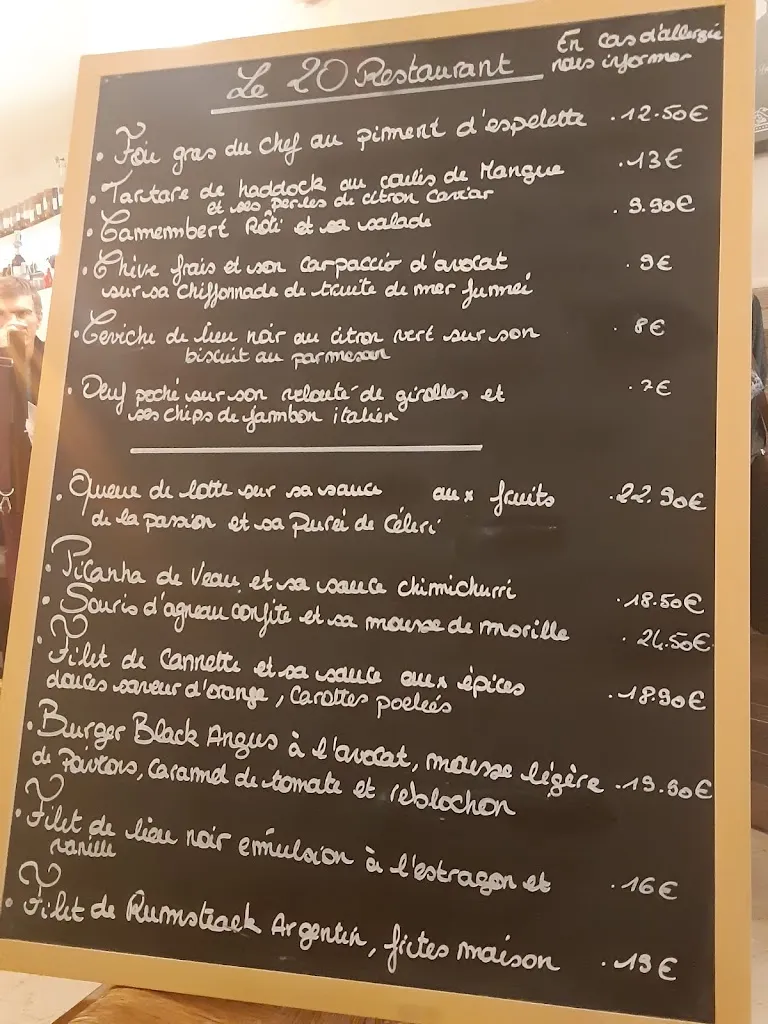 Le 20 Restaurant
En cas d'allergie
nous informer
• Foie gras du chef au piment d'espelette .12.50€
• Tartare de haddock au coulis de Mangue .13€
et ses perles de citron caviar
• Camembert Rôti et sa salade . 9.90€
• Chèvre frais et son carpaccio d'avocat . 9€
sur sa chiffonnade de truite de mer fumeé
• Ceviche de lieu noir au citron vert sur son . 8€
biscuit au parmesan
• Oeuf poché sur son velouté de girolles et . 7€
ses chips de jambon italien
• Queue de lotte sur sa sauce aux fruits .22.90€
de la passion et sa Pureé de Céleri
• Picanha de Veau et sa sauce chimichurri .18.50€
• Souris d'agneau confite et sa mousse de morille . 24.50€
• Filet de Cannette et sa sauce aux épices .18.90€
douces saveur d'orange, Carottes poeleés
• Burger Black Angus à l'avocat, mousse légère .19.90€
de Poivrons, caramel de tomate et reblochon
• Filet de lieu noir émulsion à l'estragon et . 16€
vanille
• Filet de Rumsteack Argentin, frites maison . 19€